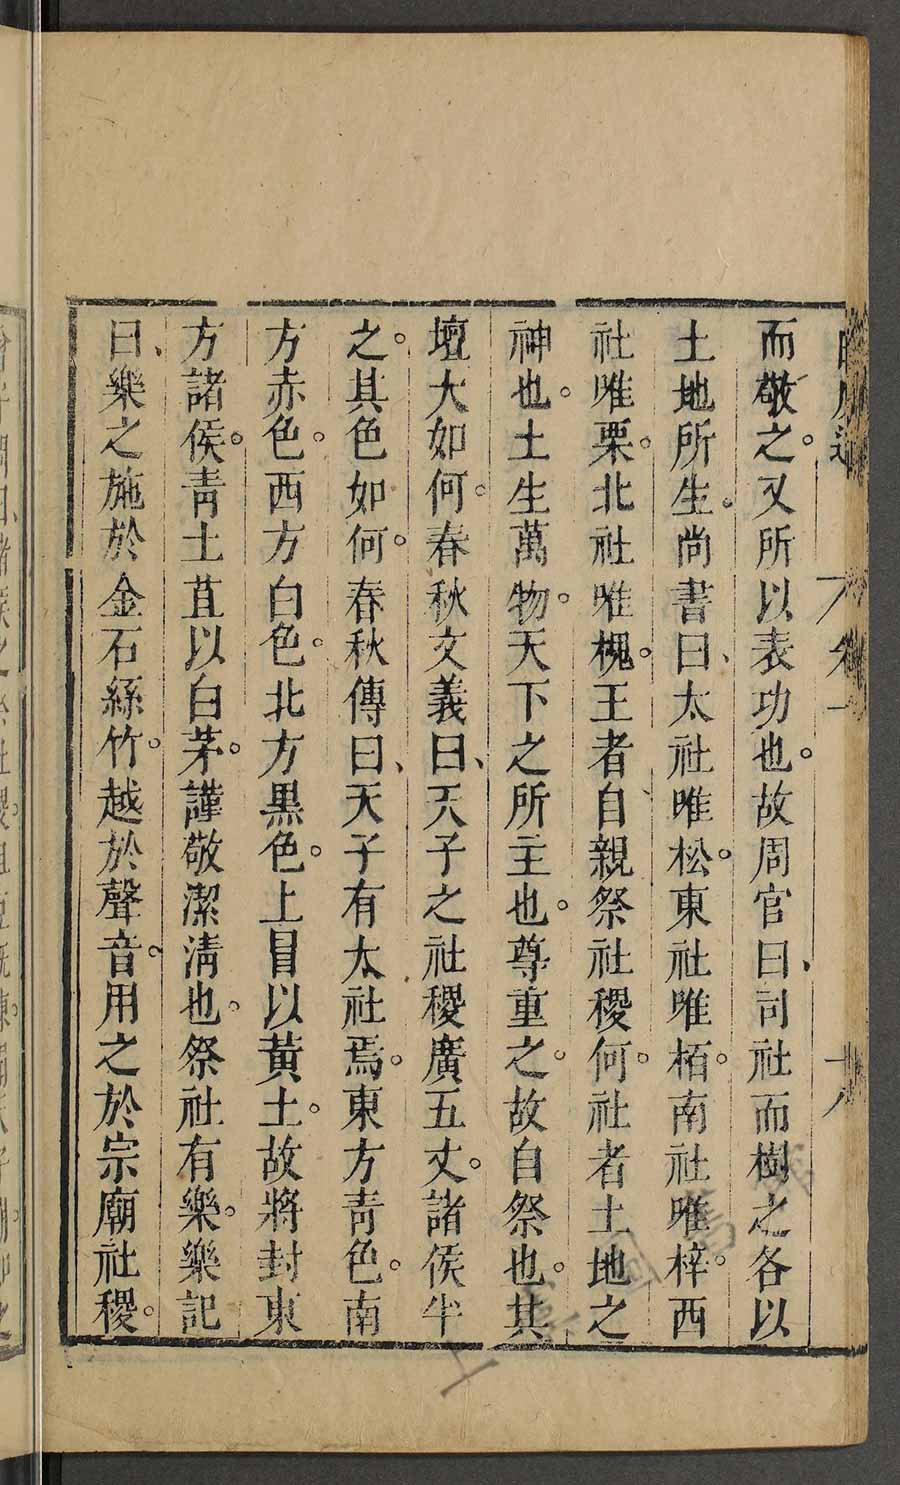 而敬之。又所以表功也。故周官曰、司社而樹之各以
土地所生。尚書曰、太社唯松。東社唯栢。南社唯梓。西
社唯栗。北社唯槐。王者自親祭社稷何。社者土地之
神也。土生萬物。天下之所主也。尊重之。故自祭也。其
壇大如何。春秋文義曰、天子之社稷廣五丈。諸侯半
之。其色如何。春秋傳曰、天子有太社焉。東方靑色。南
方赤色。西方白色。北方黑色。上冐以黃土。故將封東
方諸侯。靑土苴以白茅。謹敬潔淸也。祭社有樂。樂記
曰、樂之施於金石絲竹。越於聲音。用之於宗廟社稷。